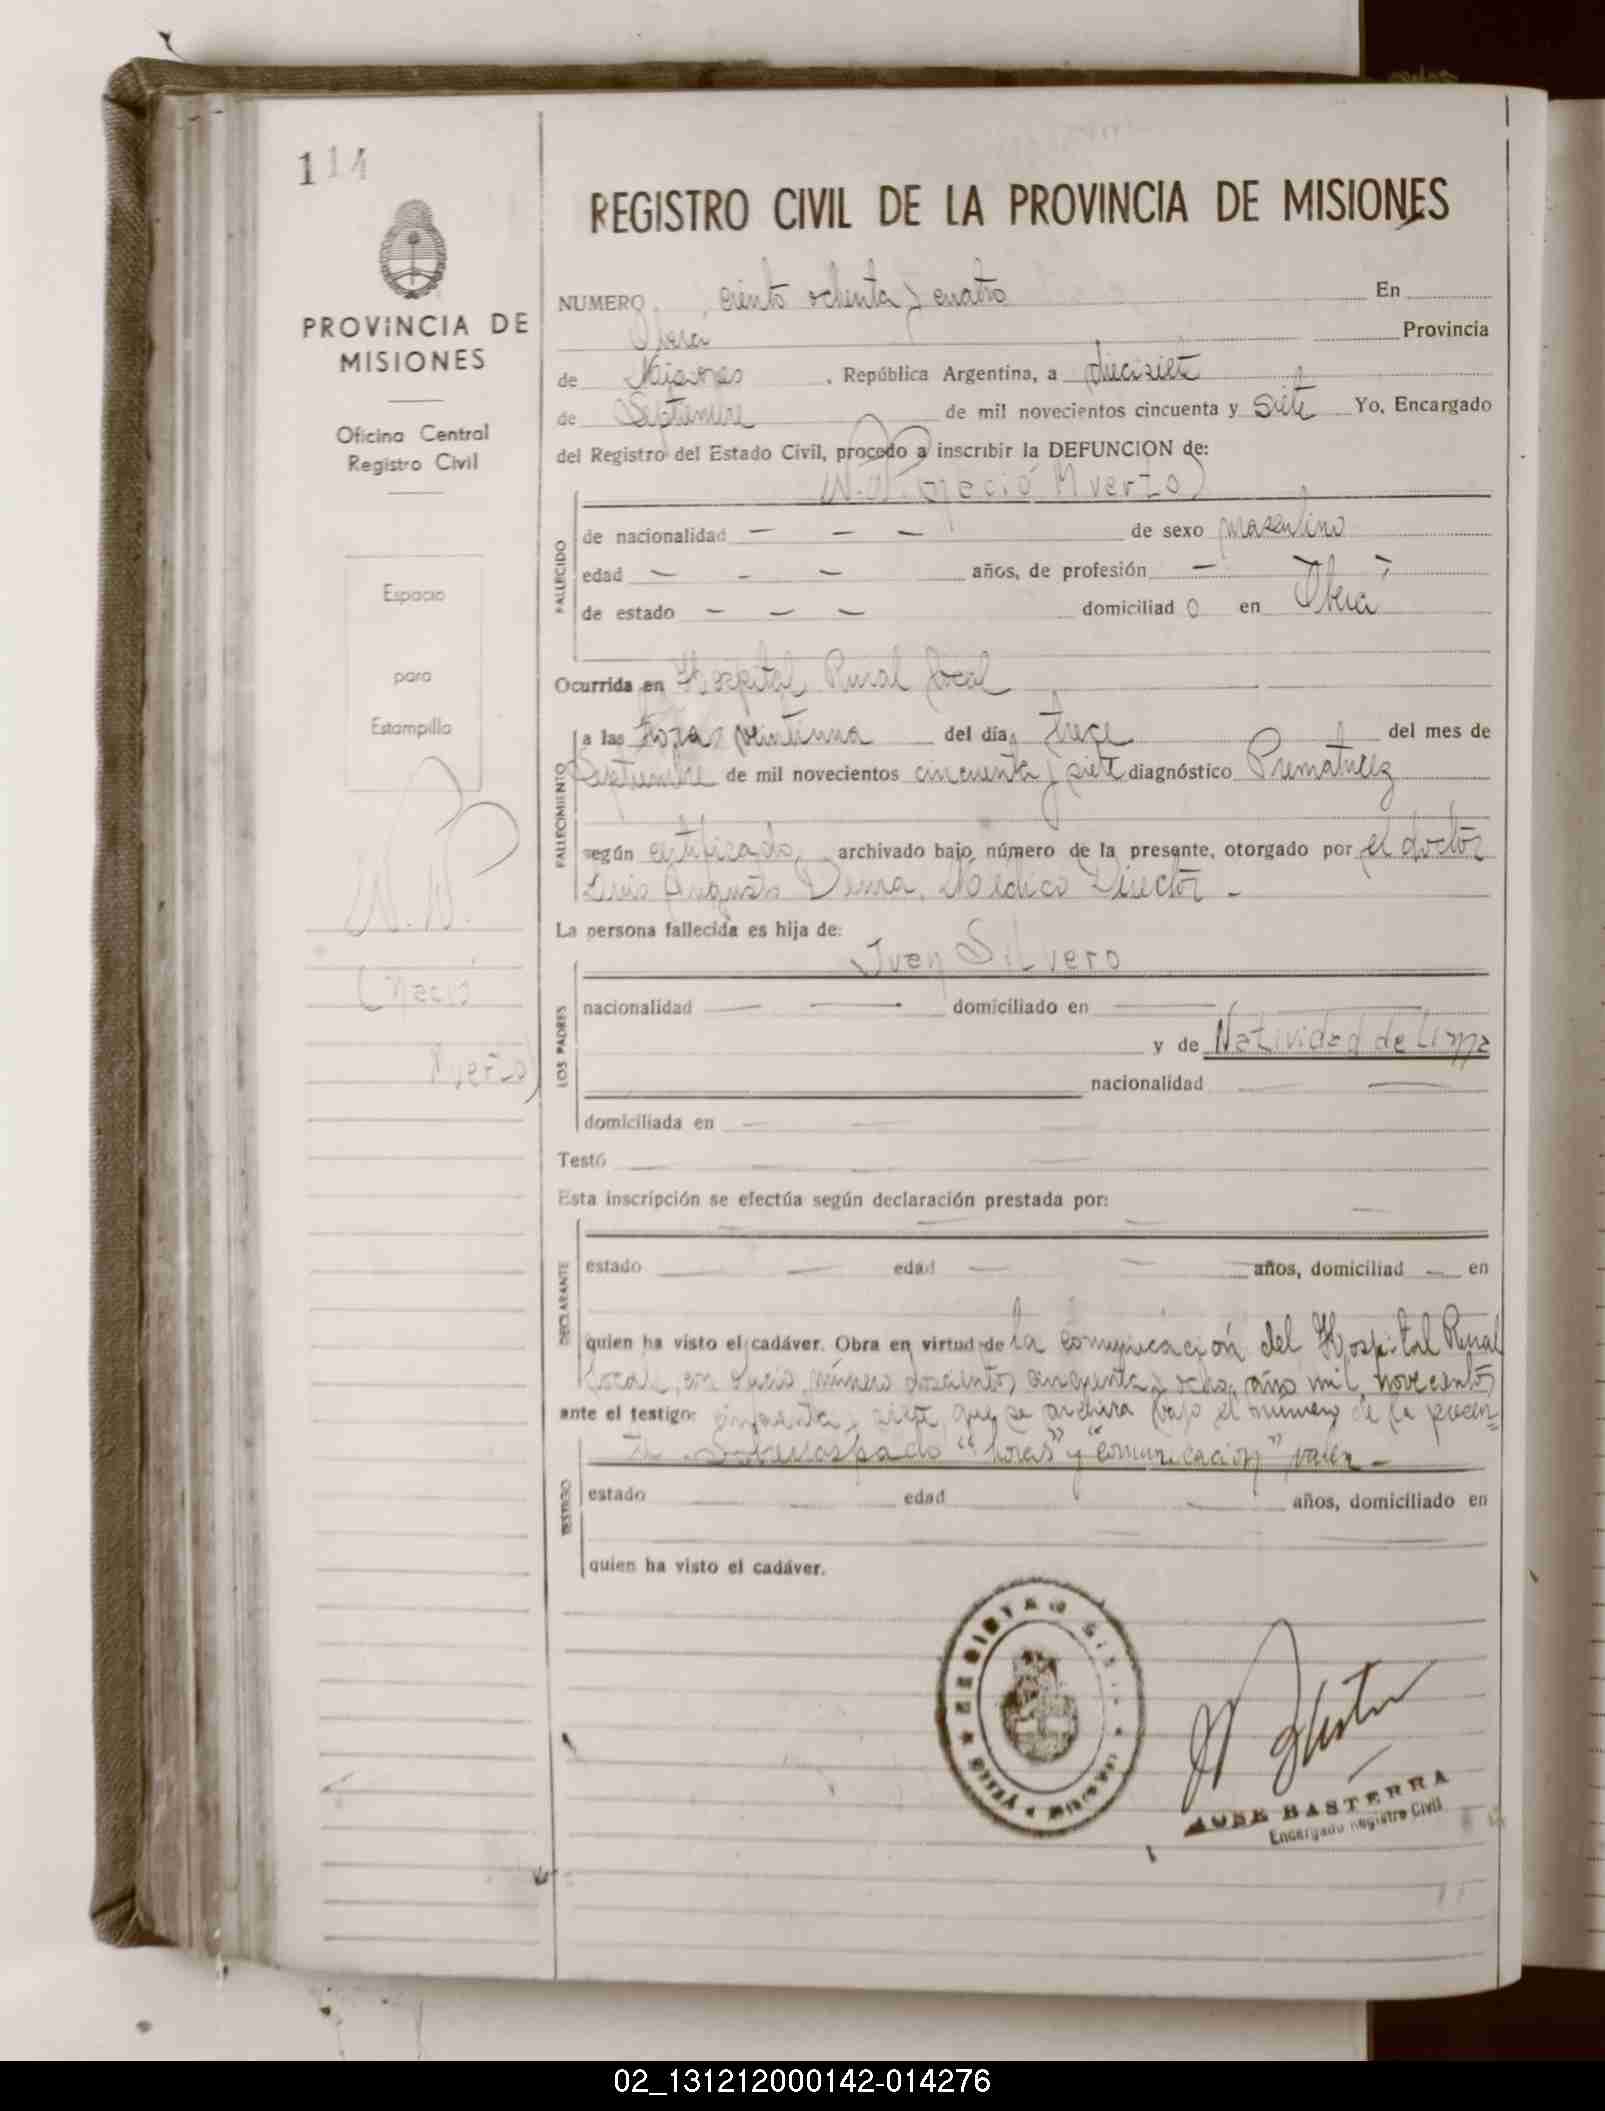 114
PROVINCIA DE
MISIONES
Oficina Central
Registro Civil
Espacio
para
Estampilla
N.N.
(Nació
Muerto)
REGISTRO CIVIL DE LA PROVINCIA DE MISIONES
NUMERO ciento ochenta y cuatro En
Oberá Provincia
de Misiones , República Argentina, a diecisiete
de Septiembre de mil novecientos cincuenta y siete Yo, Encargado
del Registro del Estado Civil, procedo a inscribir la DEFUNCION de:
N.N. (Nació Muerto)
FALLECIDO
de nacionalidad — — — de sexo masculino
edad — — — años, de profesión —
de estado — — — domiciliad o en Oberá
Ocurrida en Hospital Rural local
FALLECIMIENTO
a las horas veintiuna del día trece del mes de
Septiembre de mil novecientos cincuenta y siete diagnóstico Prematurez
según certificado archivado bajo número de la presente, otorgado por el doctor
Luis Augusto Médico Director -
La persona fallecida es hija de:
LOS PADRES
Juan Silvero
nacionalidad — — domiciliado en —
y de Natividad de Lima
nacionalidad — —
domiciliada en — —
Testó — — — —
Esta inscripción se efectúa según declaración prestada por:
DECLARANTE
estado — — edad — — años, domiciliad — en
quien ha visto el cadáver. Obra en virtud de la comunicación del Hospital Rural
local, con número doscientos cincuenta y ocho, año mil novecientos
ante el testigo: cincuenta y siete, que se archiva bajo el número de la presen=
te. Sobreraspado "horas" y "comunicación" valen -
TESTIGO
estado — — edad — años, domiciliado en
quien ha visto el cadáver.
REGISTRO CIVIL
OBERA MISIONES
JOSE BASTERRA
Encargado Registro Civil
02_131212000142-014276